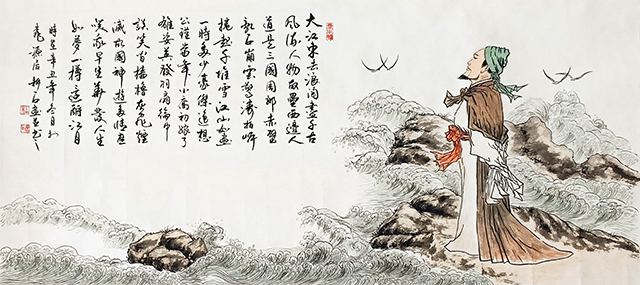 大江東去浪淘盡千古
風流人物故壘西邊人
道是三國周郎赤壁
亂石崩雲驚濤拍岸
捲起千堆雪江山如畫
一時多少豪傑遙想
公瑾當年小喬初嫁了
雄姿英發羽扇綸巾
談笑間檣櫓灰飛煙
滅故國神遊多情應
笑我早生華髮人生
如夢一樽還酹江月
時在辛丑年冬月於